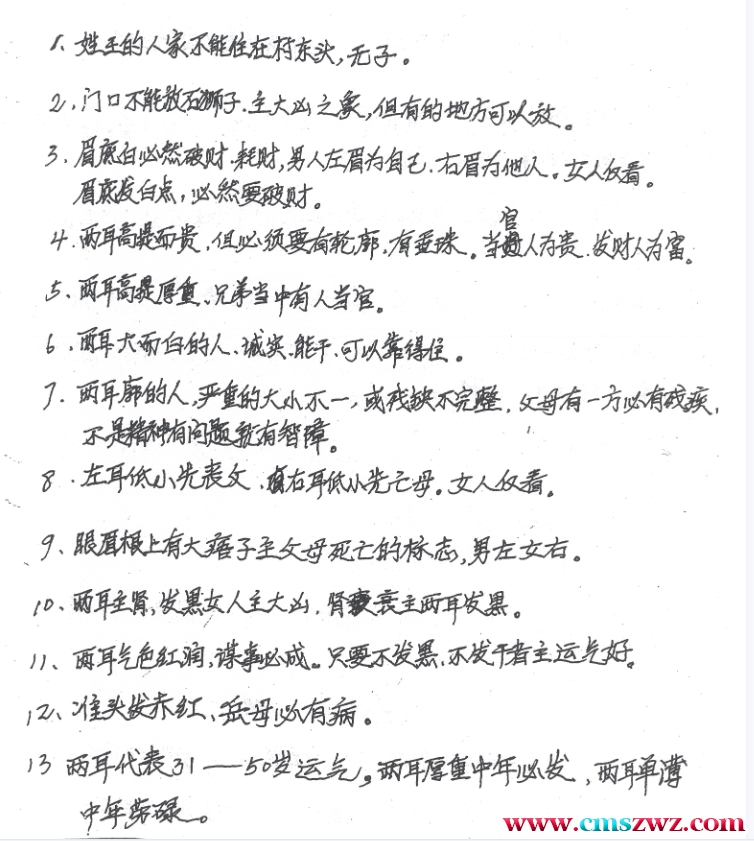 1、姓王的人家不能住在村东头,无子。
2、门口不能放石狮子、主大凶之象,但有的地方可以放。
3、眉底白必然破财、耗财,男人左眉为自己、右眉为他人。女人仅看。
眉底发白点,必然要破财。
官
4、两耳高提而贵,但必须要有轮廓,有垂珠。当人为贵、发财人为富。
5、两耳高提厚重、兄弟当中有人当官。
6、两耳大而白的人、诚实、能干、可以靠得住。
7、两耳廓的人,严重的大小不一,或残缺不完整,父母有一方必有残疾,
不是精神有问题就有智障。
8、左耳低小先丧父、右耳低小先亡母。女人仅看。
9、眼眉根上有大痦子主父母死亡的标志,男左女右。
10、两耳主肾,发黑女人主大凶,肾衰主两耳发黑。
11、两耳气色红润,谋事必成。只要不发黑、不发干者主运气好。
12、准头发赤红、岳母必有病。
13 两耳代表31——50岁运气。两耳厚重中年必发,两耳单薄
中年劳碌。
www.cmszwz.com